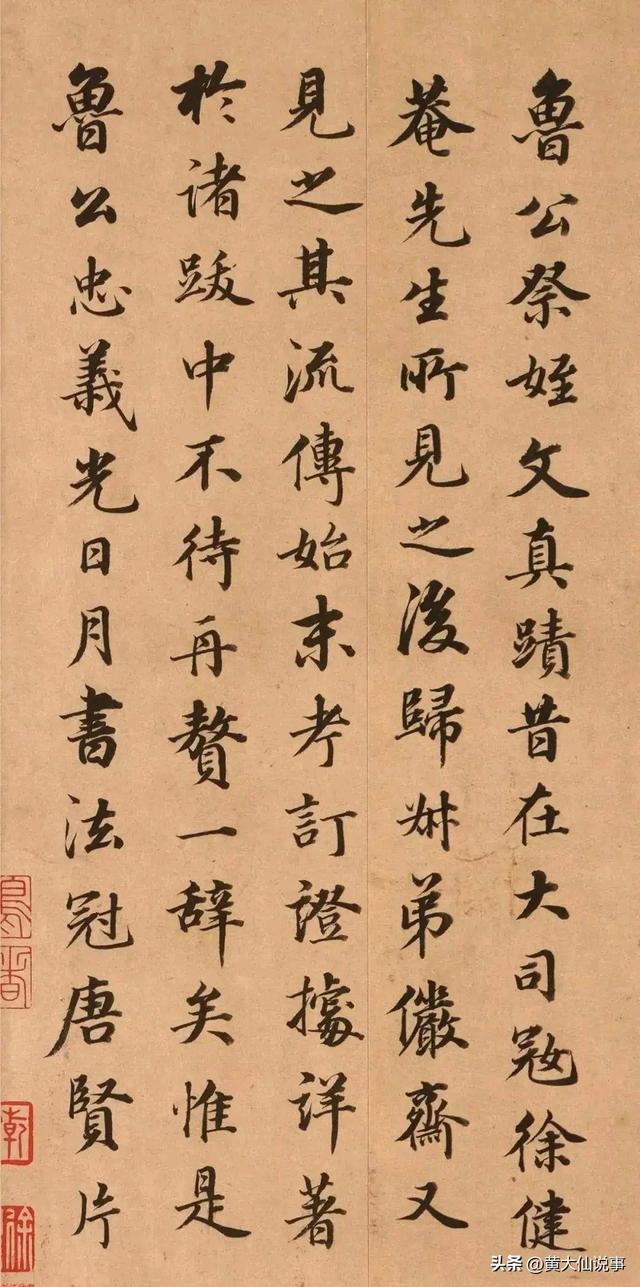 魯公祭姪文真蹟昔在大司寇徐健
菴先生所見之後歸叔弟儼齋又
見之其流傳始末考訂證據詳著
於諸跋中不待再贅一辞矣惟是
魯公忠義光日月書法冠唐賢片
头条 @黄大仙说事